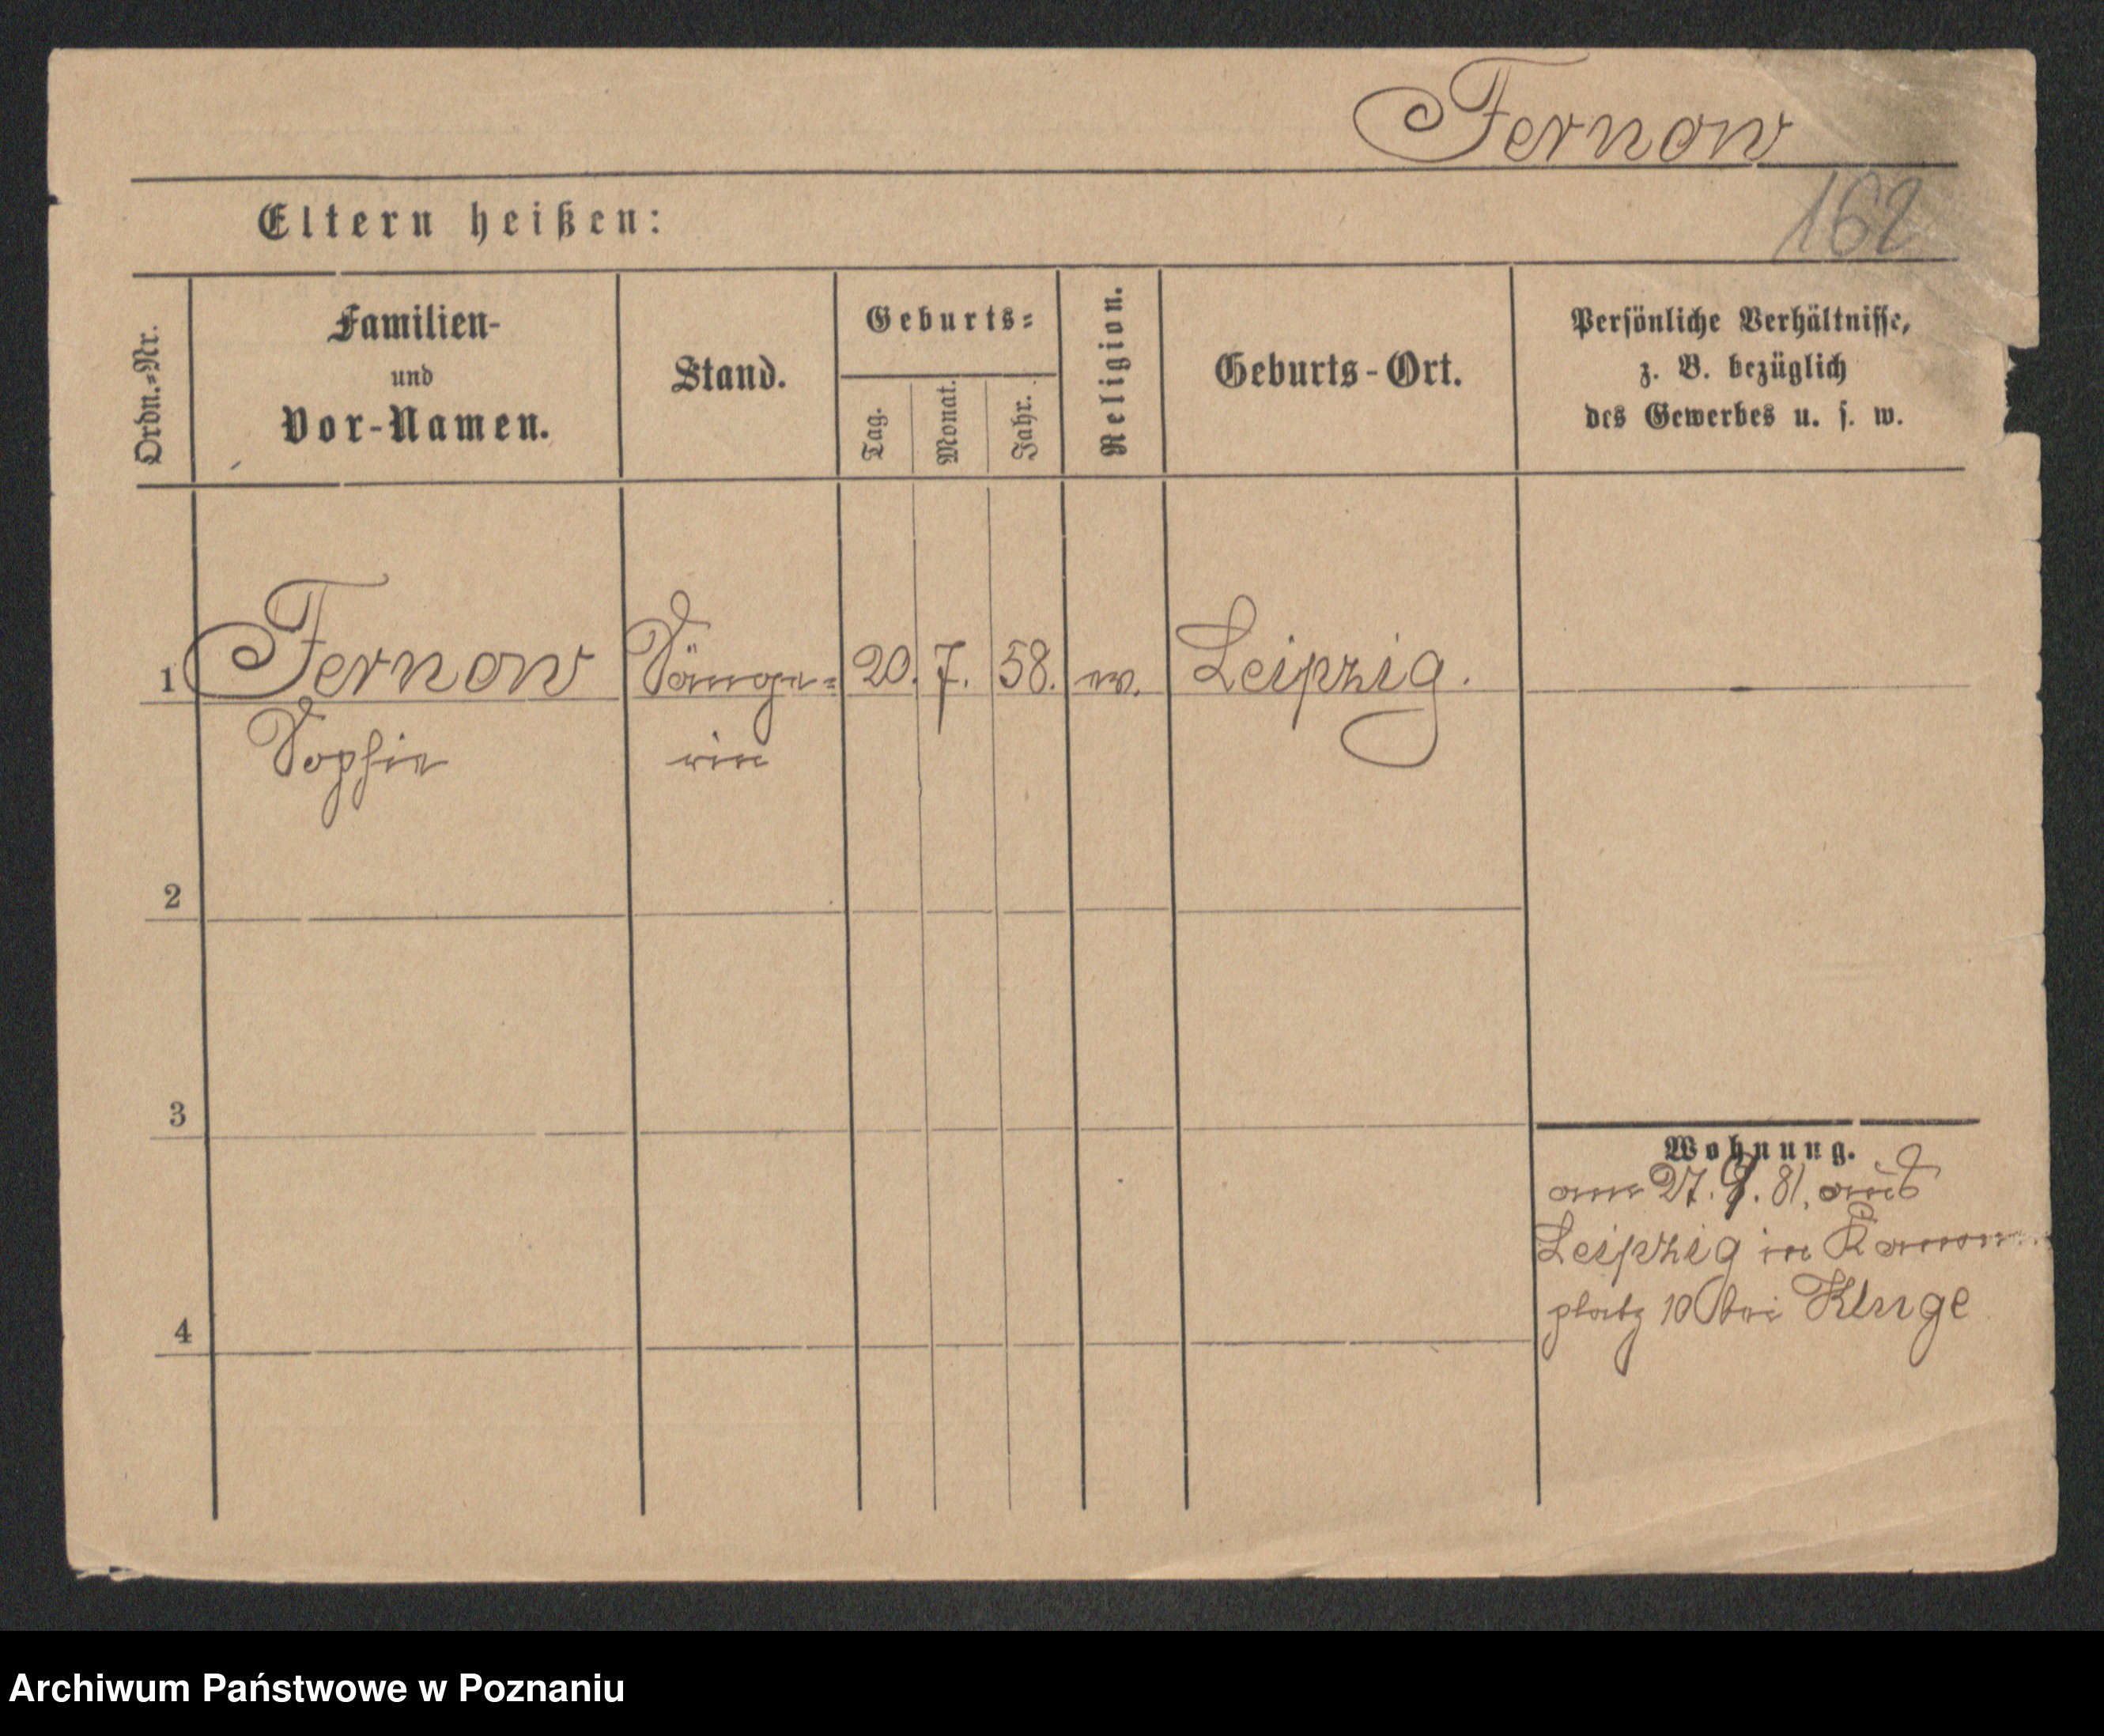 Fernow
Eltern heißen:
162
Ordn.-Nr.
Familien-
und
Vor-Namen.
Stand.
Geburts-
Tag.
Monat.
Jahr.
Religion.
Geburts-Ort.
Persönliche Verhältnisse,
z. B. bezüglich
des Gewerbes u. s. w.
1 Fernow Sänge- 20. 7. 58. Leipzig.
Sophie rin
2
3
4
Wohnung.
am 27. 9. 81. aus
Leipzig in
platz 10 bei Kluge
Archiwum Państwowe w Poznaniu